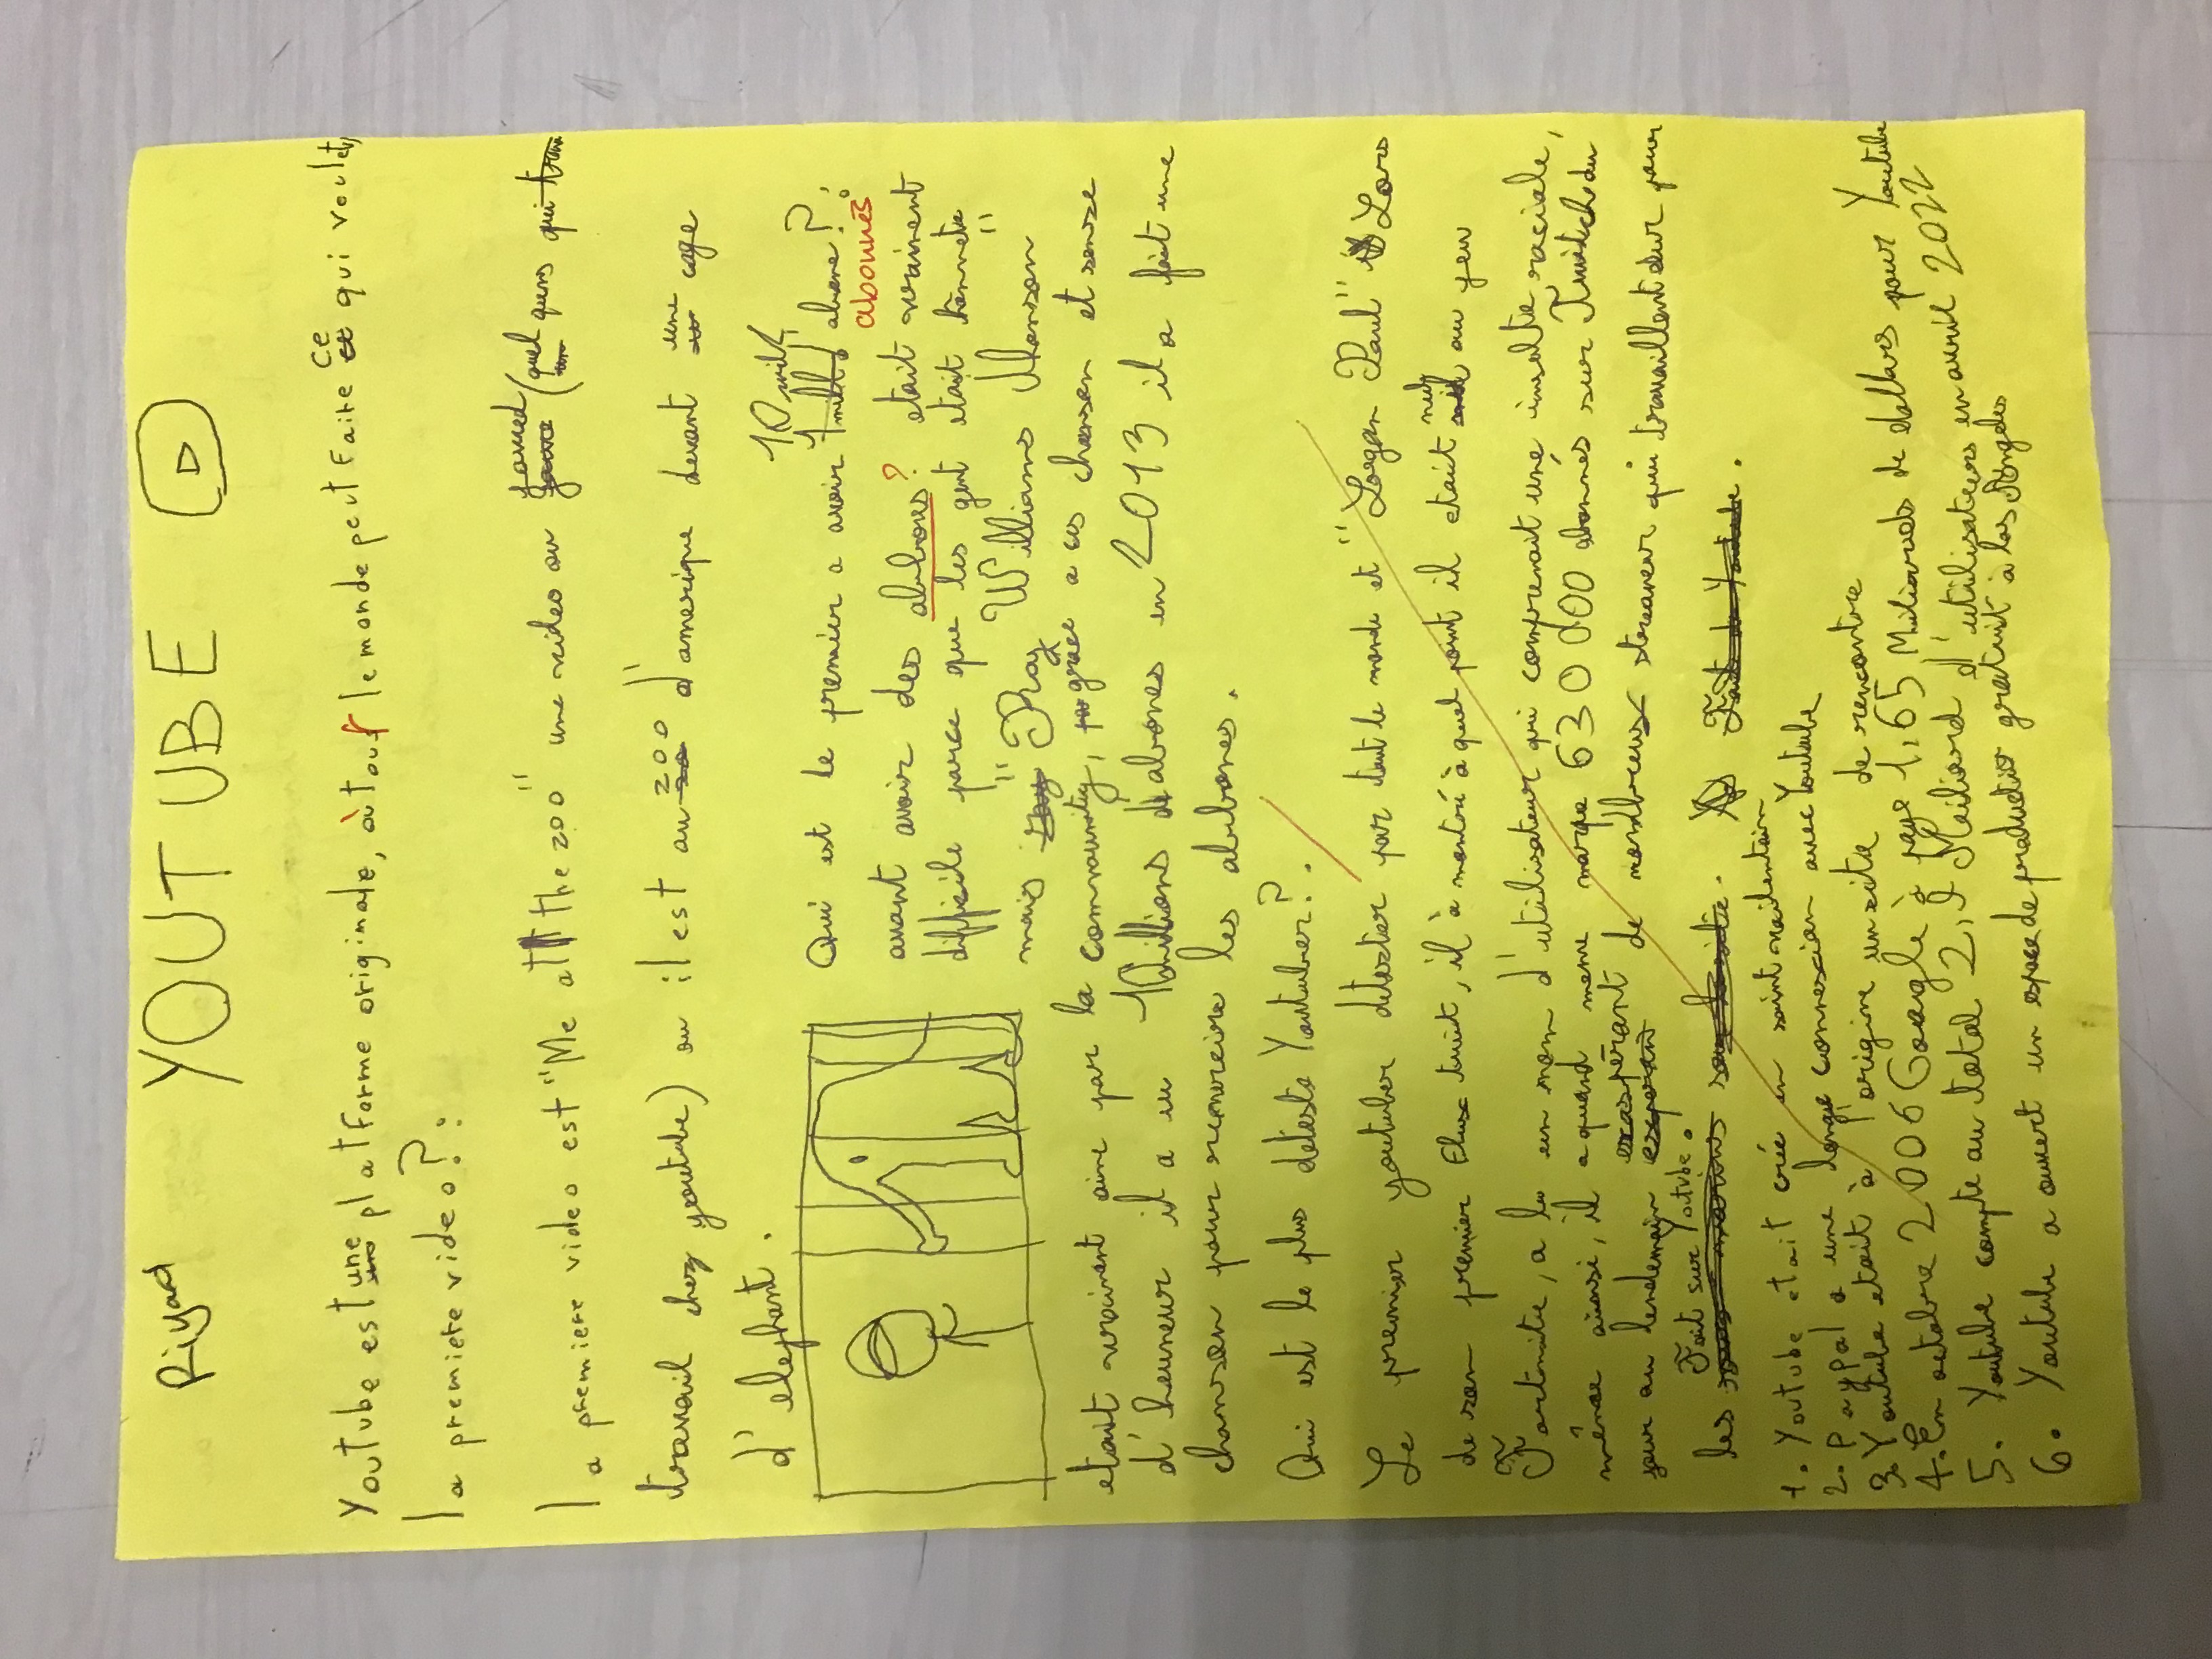 Riyad YOUTUBE
Youtube est une platforme originale, où tout le monde peut faire ce qui voulet,
la premiere video?:
la premiere video est "Me at the zoo" une video ou jawed (quel quns qui
travail chez youtube) ou il est au zoo d'amerique devant une cage
d'elephant.
Qui est le premier a avoir 10 mill abone?,
abonnés:
avant avoir des abbons? etait vraiment
difficile parce que les gent etait hônnete
mais "Ray Williams Jhonson"
etait vraiment aime par la community, grace a ces chanson et sense
d'heumeur il a eu 10 millions d'abones en 2013 il a fait une
chanson pour remerciere les abbones.
Qui est le plus déteste Youtuber?.
Le premier youtuber détester par tout le monde et "Logan Paul" Lors
de son premier Elux tuit, il à montré à quel point il etait nul au yeu
Fortnite, a lu un nom d'utilisateur qui comprenait une insulte raciale,
même ainsi, il a quand meme marque 630 000 abonnés sur Twitch du
jour au lendemain exaspérant de nombreux streameur qui travaillent dur pour
les Fait sur Youtube.
1. Youtube etait crée en saint valentain
2. Paypal a une longe connexion avec Youtube
3. Youtube etait à l'origine un site de rencontre
4. En octobre 2006 Google à paye 1,65 Miliards de dollars pour Youtube
5. Youtube compte au total 2,1 Maliard d'utilisateurs en avril 2022
6. Youtube a ouvert un espace de productio gratuit à los Angeles